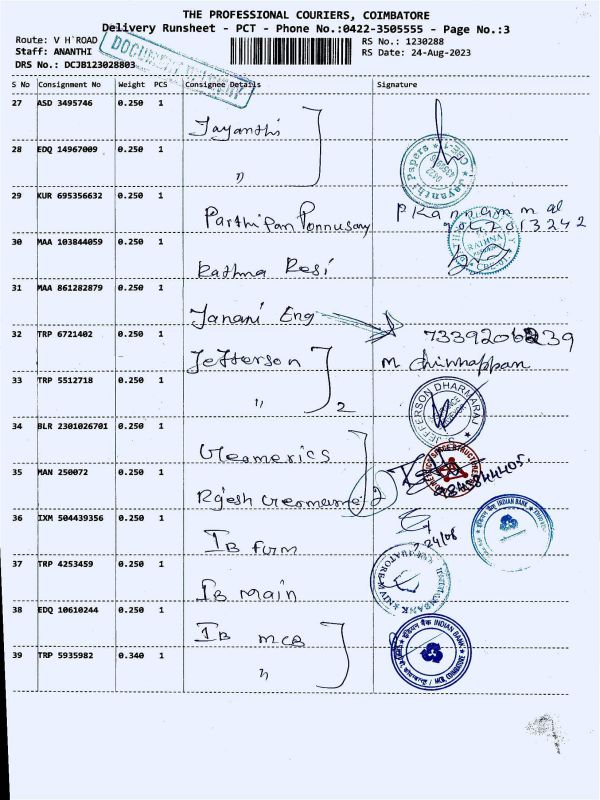 THE PROFESSIONAL COURIERS, COIMBATORE
Delivery Runsheet - PCT - Phone No.:0422-3505555 - Page No.:3
Route: V H ROAD
RS No.: 1230288
Staff: ANANTHI
RS Date: 24-Aug-2023
DRS No.: DCJB123028803
DOCUMENT DELIVERY
S No Consignment No Weight PCS Consignee Details Signature
27 ASD 3495746 0.250 1
Jayanthi
28 EDQ 14967009 0.250 1
"
Jayanthi Papers * CBE-1
29 KUR 695356632 0.250 1
Parthipan Ponnusamy
30 MAA 103844059 0.250 1
RATHNA
Rathna Resi
31 MAA 861282879 0.250 1
Janani Eng
32 TRP 6721402 0.250 1
Jefferson
m. chinnappan
33 TRP 5512718 0.250 1
" 2
JEFFERSON DHARMARAJ
34 BLR 2301026701 0.250 1
Geomerics
35 MAN 250072 0.250 1
2
36 IXM 504439356 0.250 1
24/08
INDIAN BANK
IB furm
37 TRP 4253459 0.250 1
IB main
38 EDQ 10610244 0.250 1
IB MCB
इंडियन बैंक INDIAN BANK
MCB, COIMBATORE
39 TRP 5935982 0.340 1
"